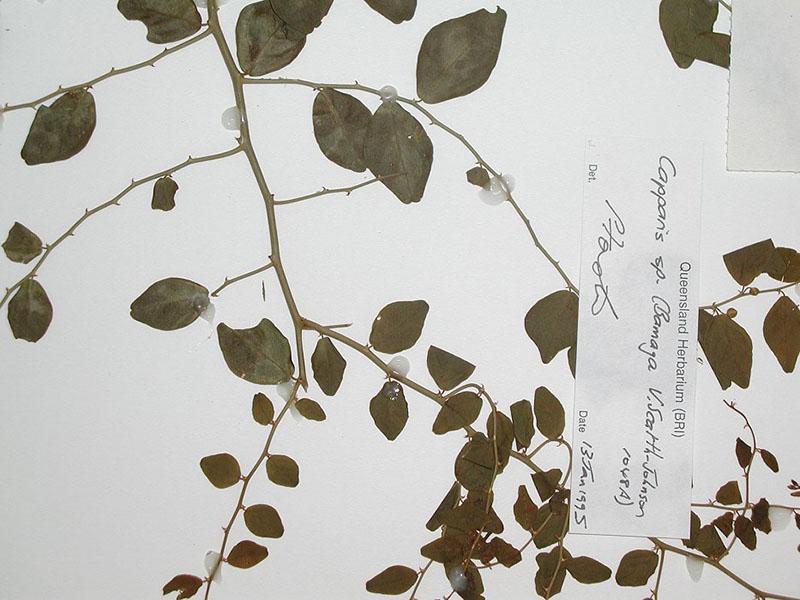 Queensland Herbarium (BRI)
Capparis sp. (Bamaga V.Scarth-Johnson
1048A)
Det.
Date 13 Jan 1995